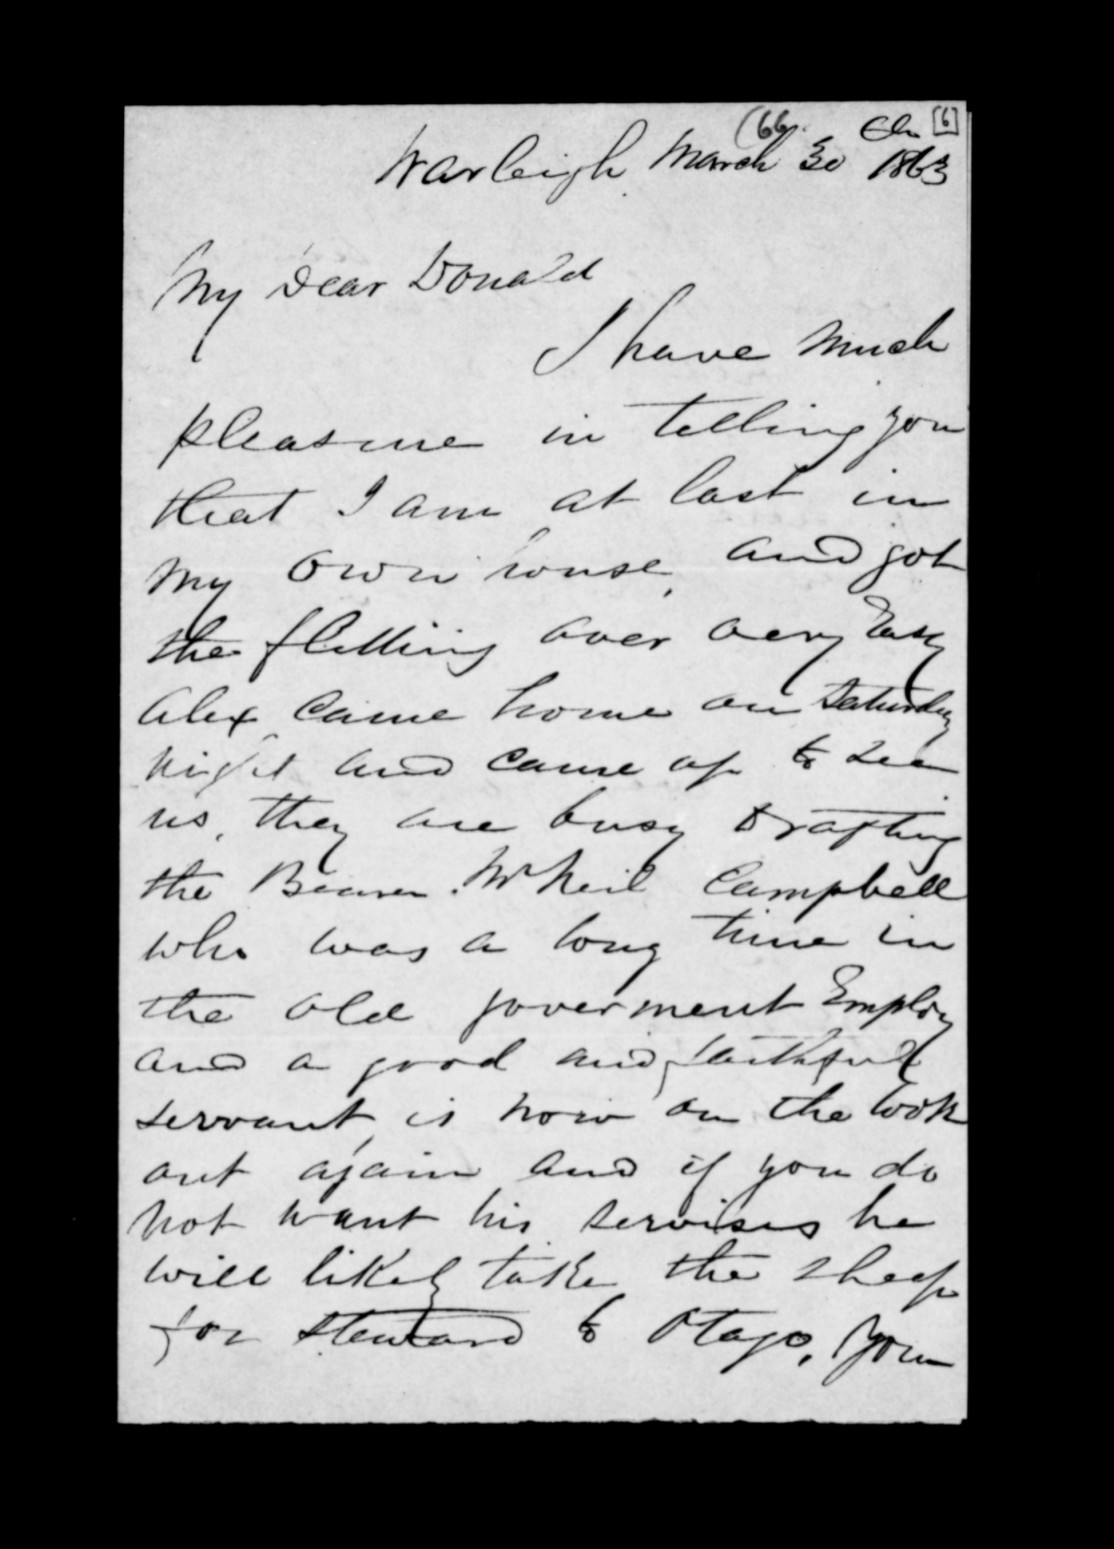 (66. [6]
Warleigh March 30 1863
My Dear Donald
I have much
pleasure in telling you
that I am at last in
my own house, and got
the flitting over very Easy
Alex came home on Saturday
night and came up to see
us, they are busy Drafting
the Beaver. Mr Neil Campbell
who was a long time in
the old goverment Employ
and a good and faithful
servant, is now on the look
out again and if you do
not want his servises he
will likely take the sheep
for Steward to Otago, you